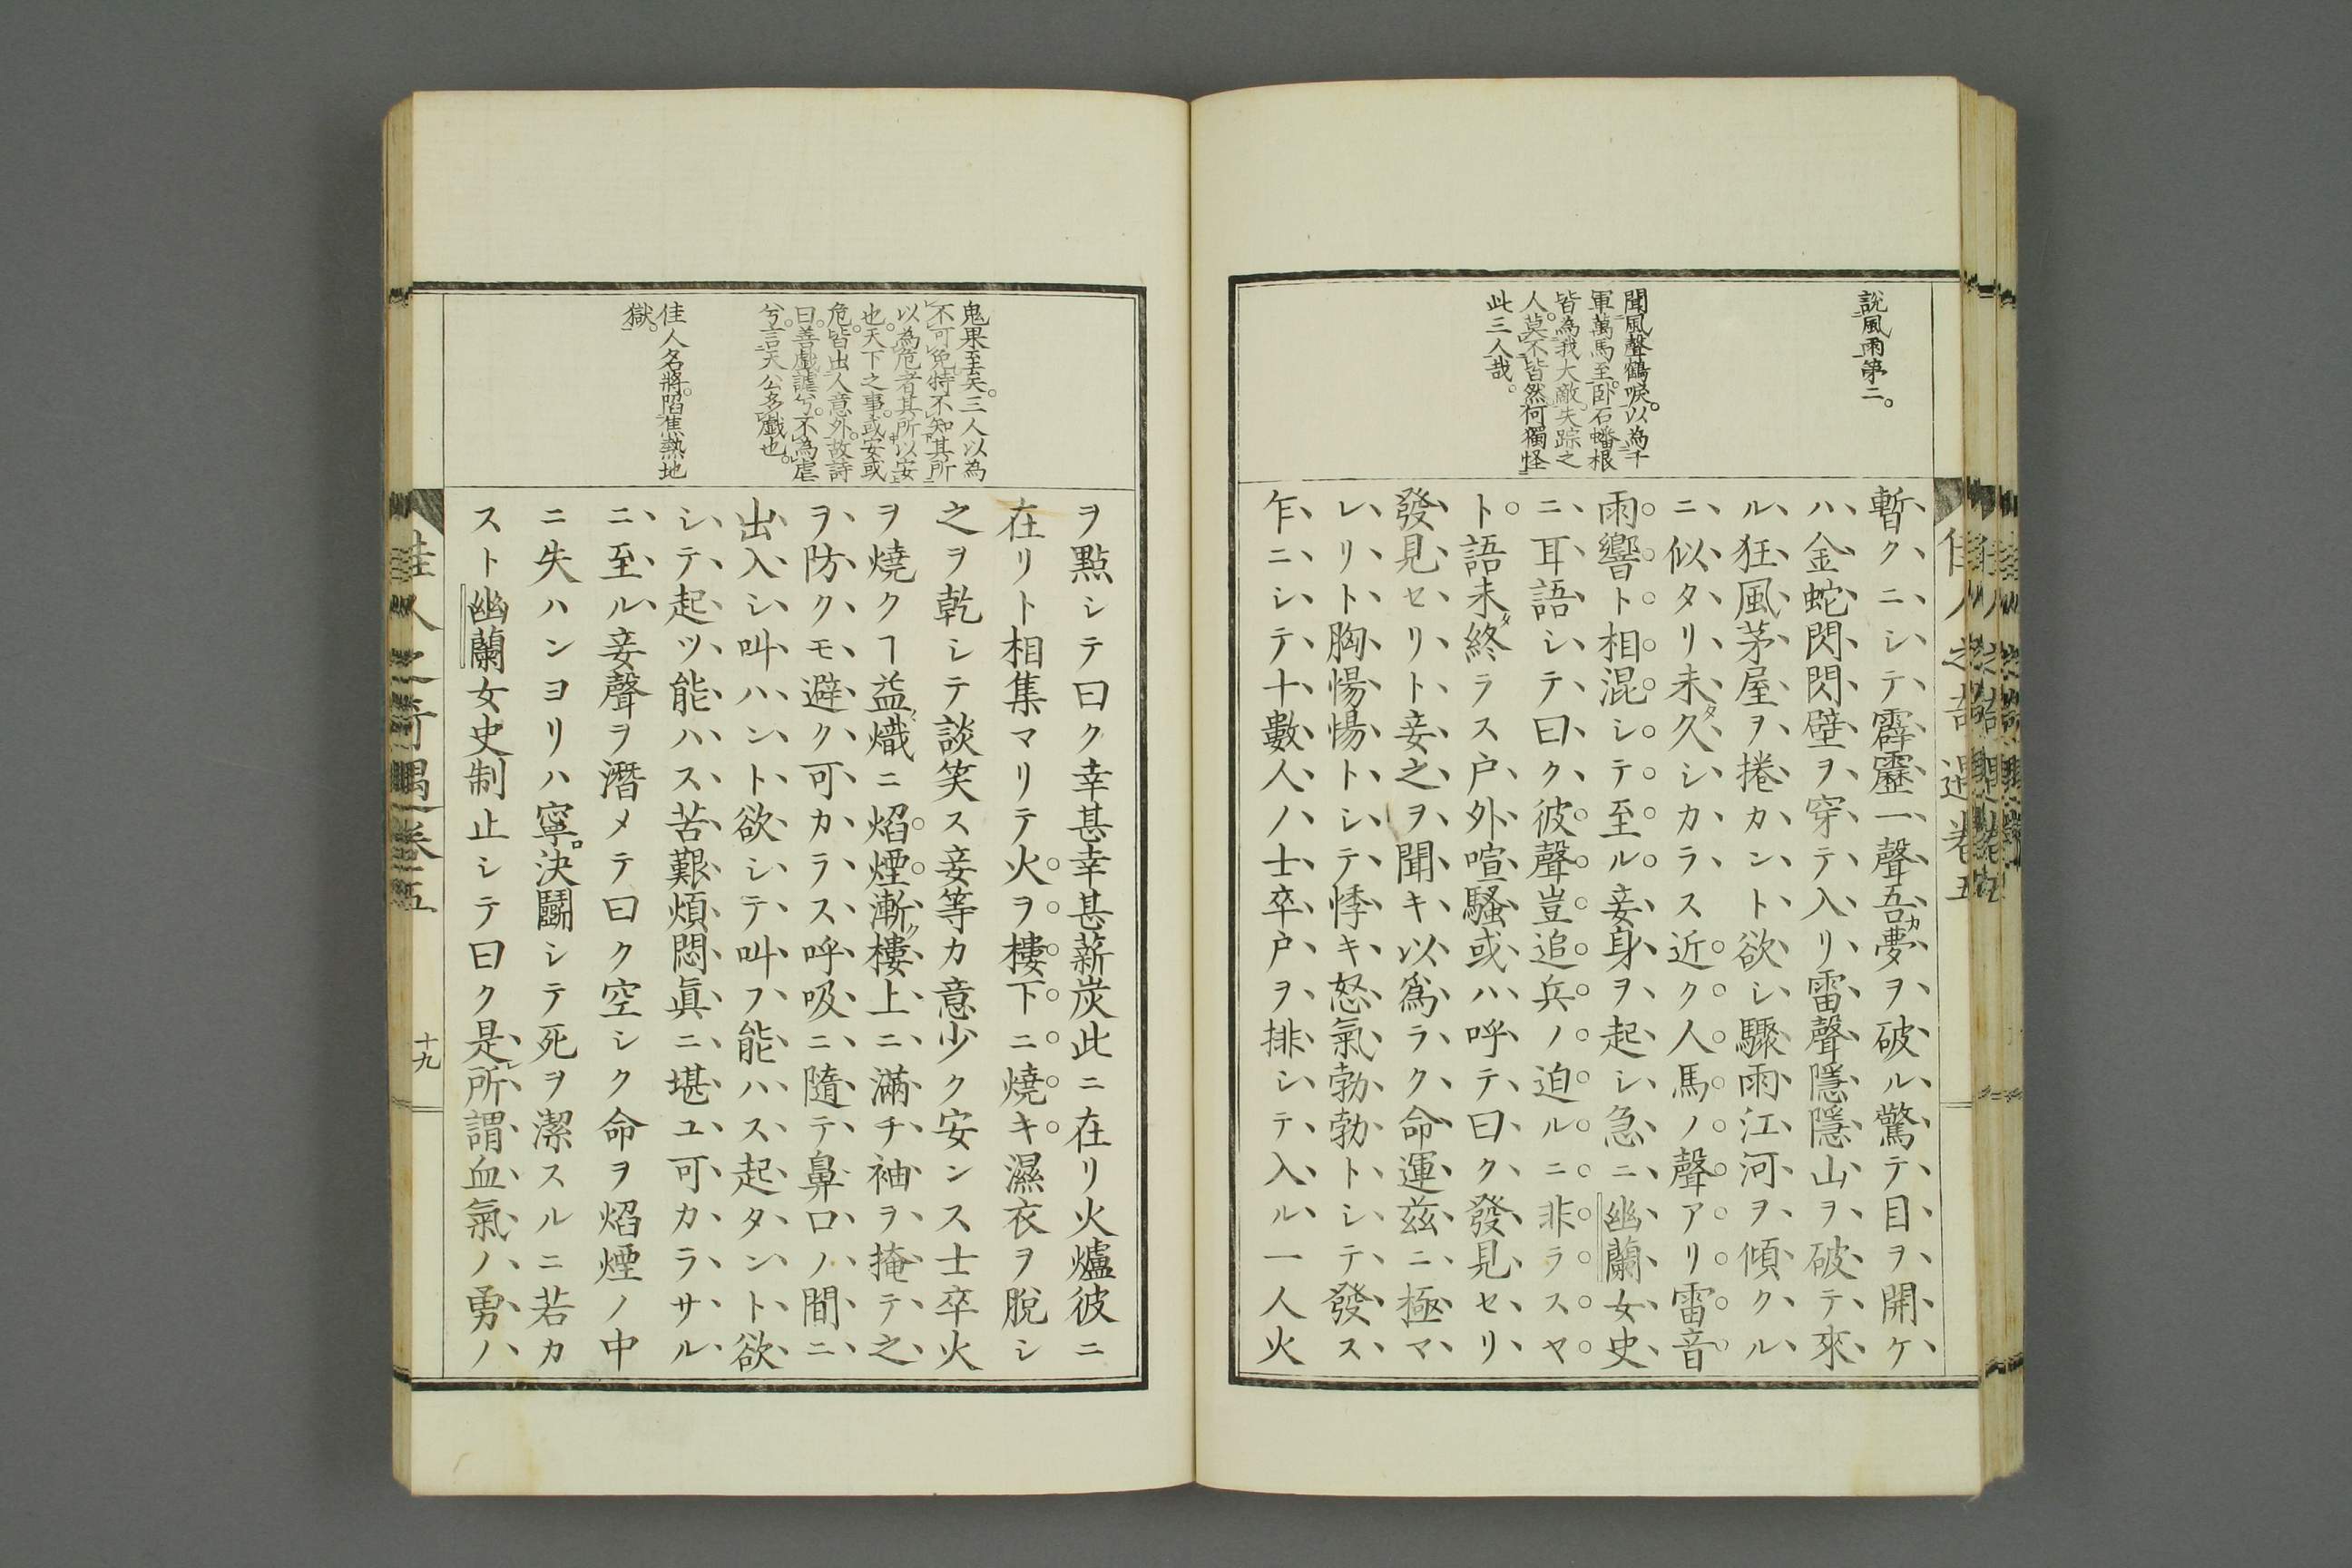 說風雨第二。
聞風聲鶴唳。以為千
軍萬馬至。卧石蟠根
皆為我大敵。失踪之
人。莫不皆然。何獨怪
此三人哉。
暫クニシテ霹靂一聲吾カ夢ヲ破ル驚テ目ヲ開ケ
ハ金蛇閃閃壁ヲ穿テ入リ雷聲隱隱山ヲ破テ來
ル狂風茅屋ヲ捲カント欲シ驟雨江河ヲ傾クル
ニ似タリ未タ久シカラス近ク人馬ノ聲アリ雷音
雨響ト相混シテ至ル妾身ヲ起シ急ニ幽蘭女史
ニ耳語シテ曰ク彼聲豈追兵ノ迫ルニ非ラスヤ
ト語未タ終ラス户外喧騷或ハ呼テ曰ク發見セリ
發見セリト妾之ヲ聞キ以爲ラク命運茲ニ極マ
レリト胸惕惕トシテ悸キ怒氣勃勃トシテ發ス
乍ニシテ十數人ノ士卒户ヲ排シテ入ル一人火
鬼果至矣。三人以為
不可免。特不知其所
以為危者其所以安
也。天下之事。或安或
危。皆出人意外。故詩
曰。善戲謔兮。不為虐
兮。言天公多戲也。
佳人名將。陷焦熱地
獄。
ヲ點シテ曰ク幸甚幸甚薪炭此ニ在リ火爐彼ニ
在リト相集マリテ火ヲ樓下ニ燒キ濕衣ヲ脫シ
之ヲ乾シテ談笑ス妾等カ意少ク安ンス士卒火
ヲ燒クヿ益熾ニ焰煙漸ク樓上ニ滿チ袖ヲ掩テ之
ヲ防クモ避ク可カラス呼吸ニ隨テ鼻口ノ間ニ
出入シ叫ハント欲シテ叫フ能ハス起タント欲
シテ起ツ能ハス苦艱煩悶眞ニ堪ユ可カラサル
ニ至ル妾聲ヲ潛メテ曰ク空シク命ヲ焰煙ノ中
ニ失ハンヨリハ寧ロ決鬪シテ死ヲ潔スルニ若カ
スト幽蘭女史制止シテ曰ク是レ所謂血氣ノ勇ノ
佳人之奇遇卷五
十九